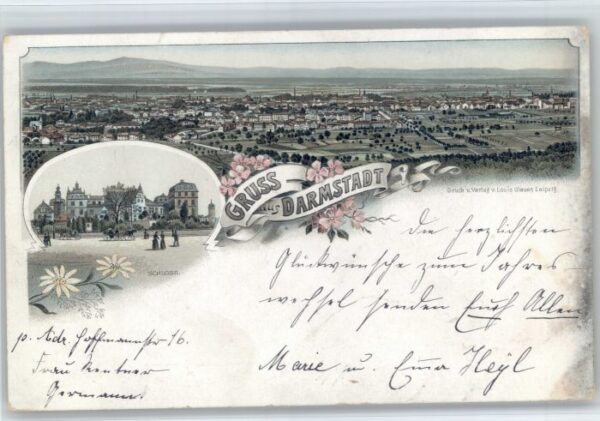 GRUSS
aus DARMSTADT
Druck u. Verlag v. Louis Glaser, Leipzig.
SCHLOSS.
Die herzlichsten
Glückwünsche zum Jahres
wechsel senden Euch Allen
Marie u. Emma Heyl
p. Adr. Hoffmannstr 16.
Frau Rentner
Germann